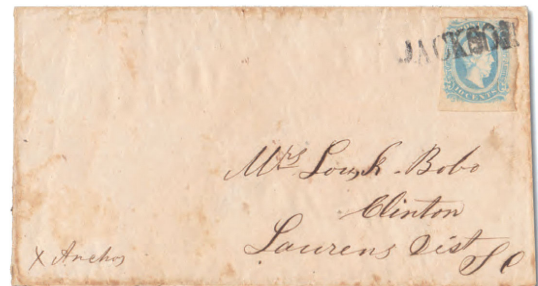 JACKSON
TEN CENTS
Mrs Lou, R. Bobo
Clinton
Laurens Dist
S C
X Anchor